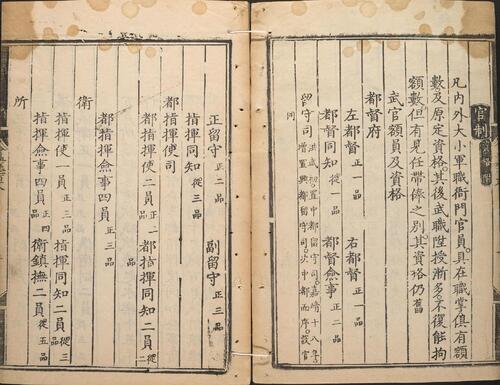 官制
凡内外大小軍職衙門官員。具在職掌。俱有額
數及原定資格。其後武職陞授漸多。不復能拘
額數。但有見任帶俸之別。其資格仍舊
武官額員及資格
都督府
左都督正一品 右都督正一品
都督同知從一品 都督僉事正二品
留守司洪武初置中都留守司。嘉靖十八年
增置興都留守司。
正留守正二品 副留守正三品
指揮同知從三品
都指揮使司
都指揮使二員正二品 都指揮同知二員從二品
都指揮僉事四員正三品
衛
指揮使一員正三品 指揮同知二員從三品
指揮僉事四員正四品 衛鎮撫二員從五品
所